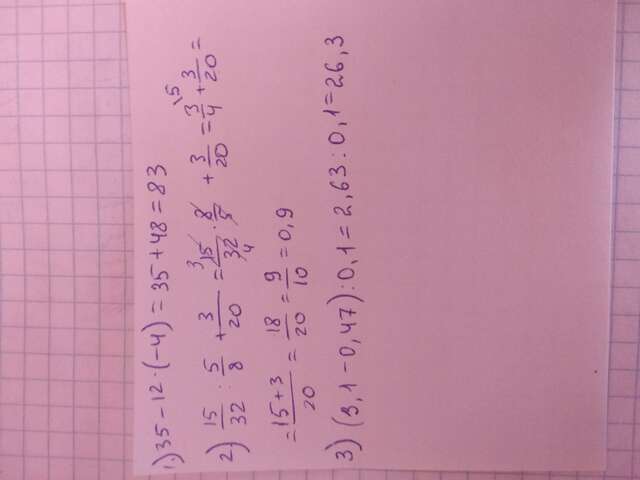 1) 35 - 12 · (-4) = 35 + 48 = 83
2) 15/32 : 5/8 + 3/20 = 15/32 · 8/5 + 3/20 = 3/4 + 3/20 =
3 4 \5
= 15+3/20 = 18/20 = 9/10 = 0,9
3) (3,1 - 0,47) : 0,1 = 2,63 : 0,1 = 26,3